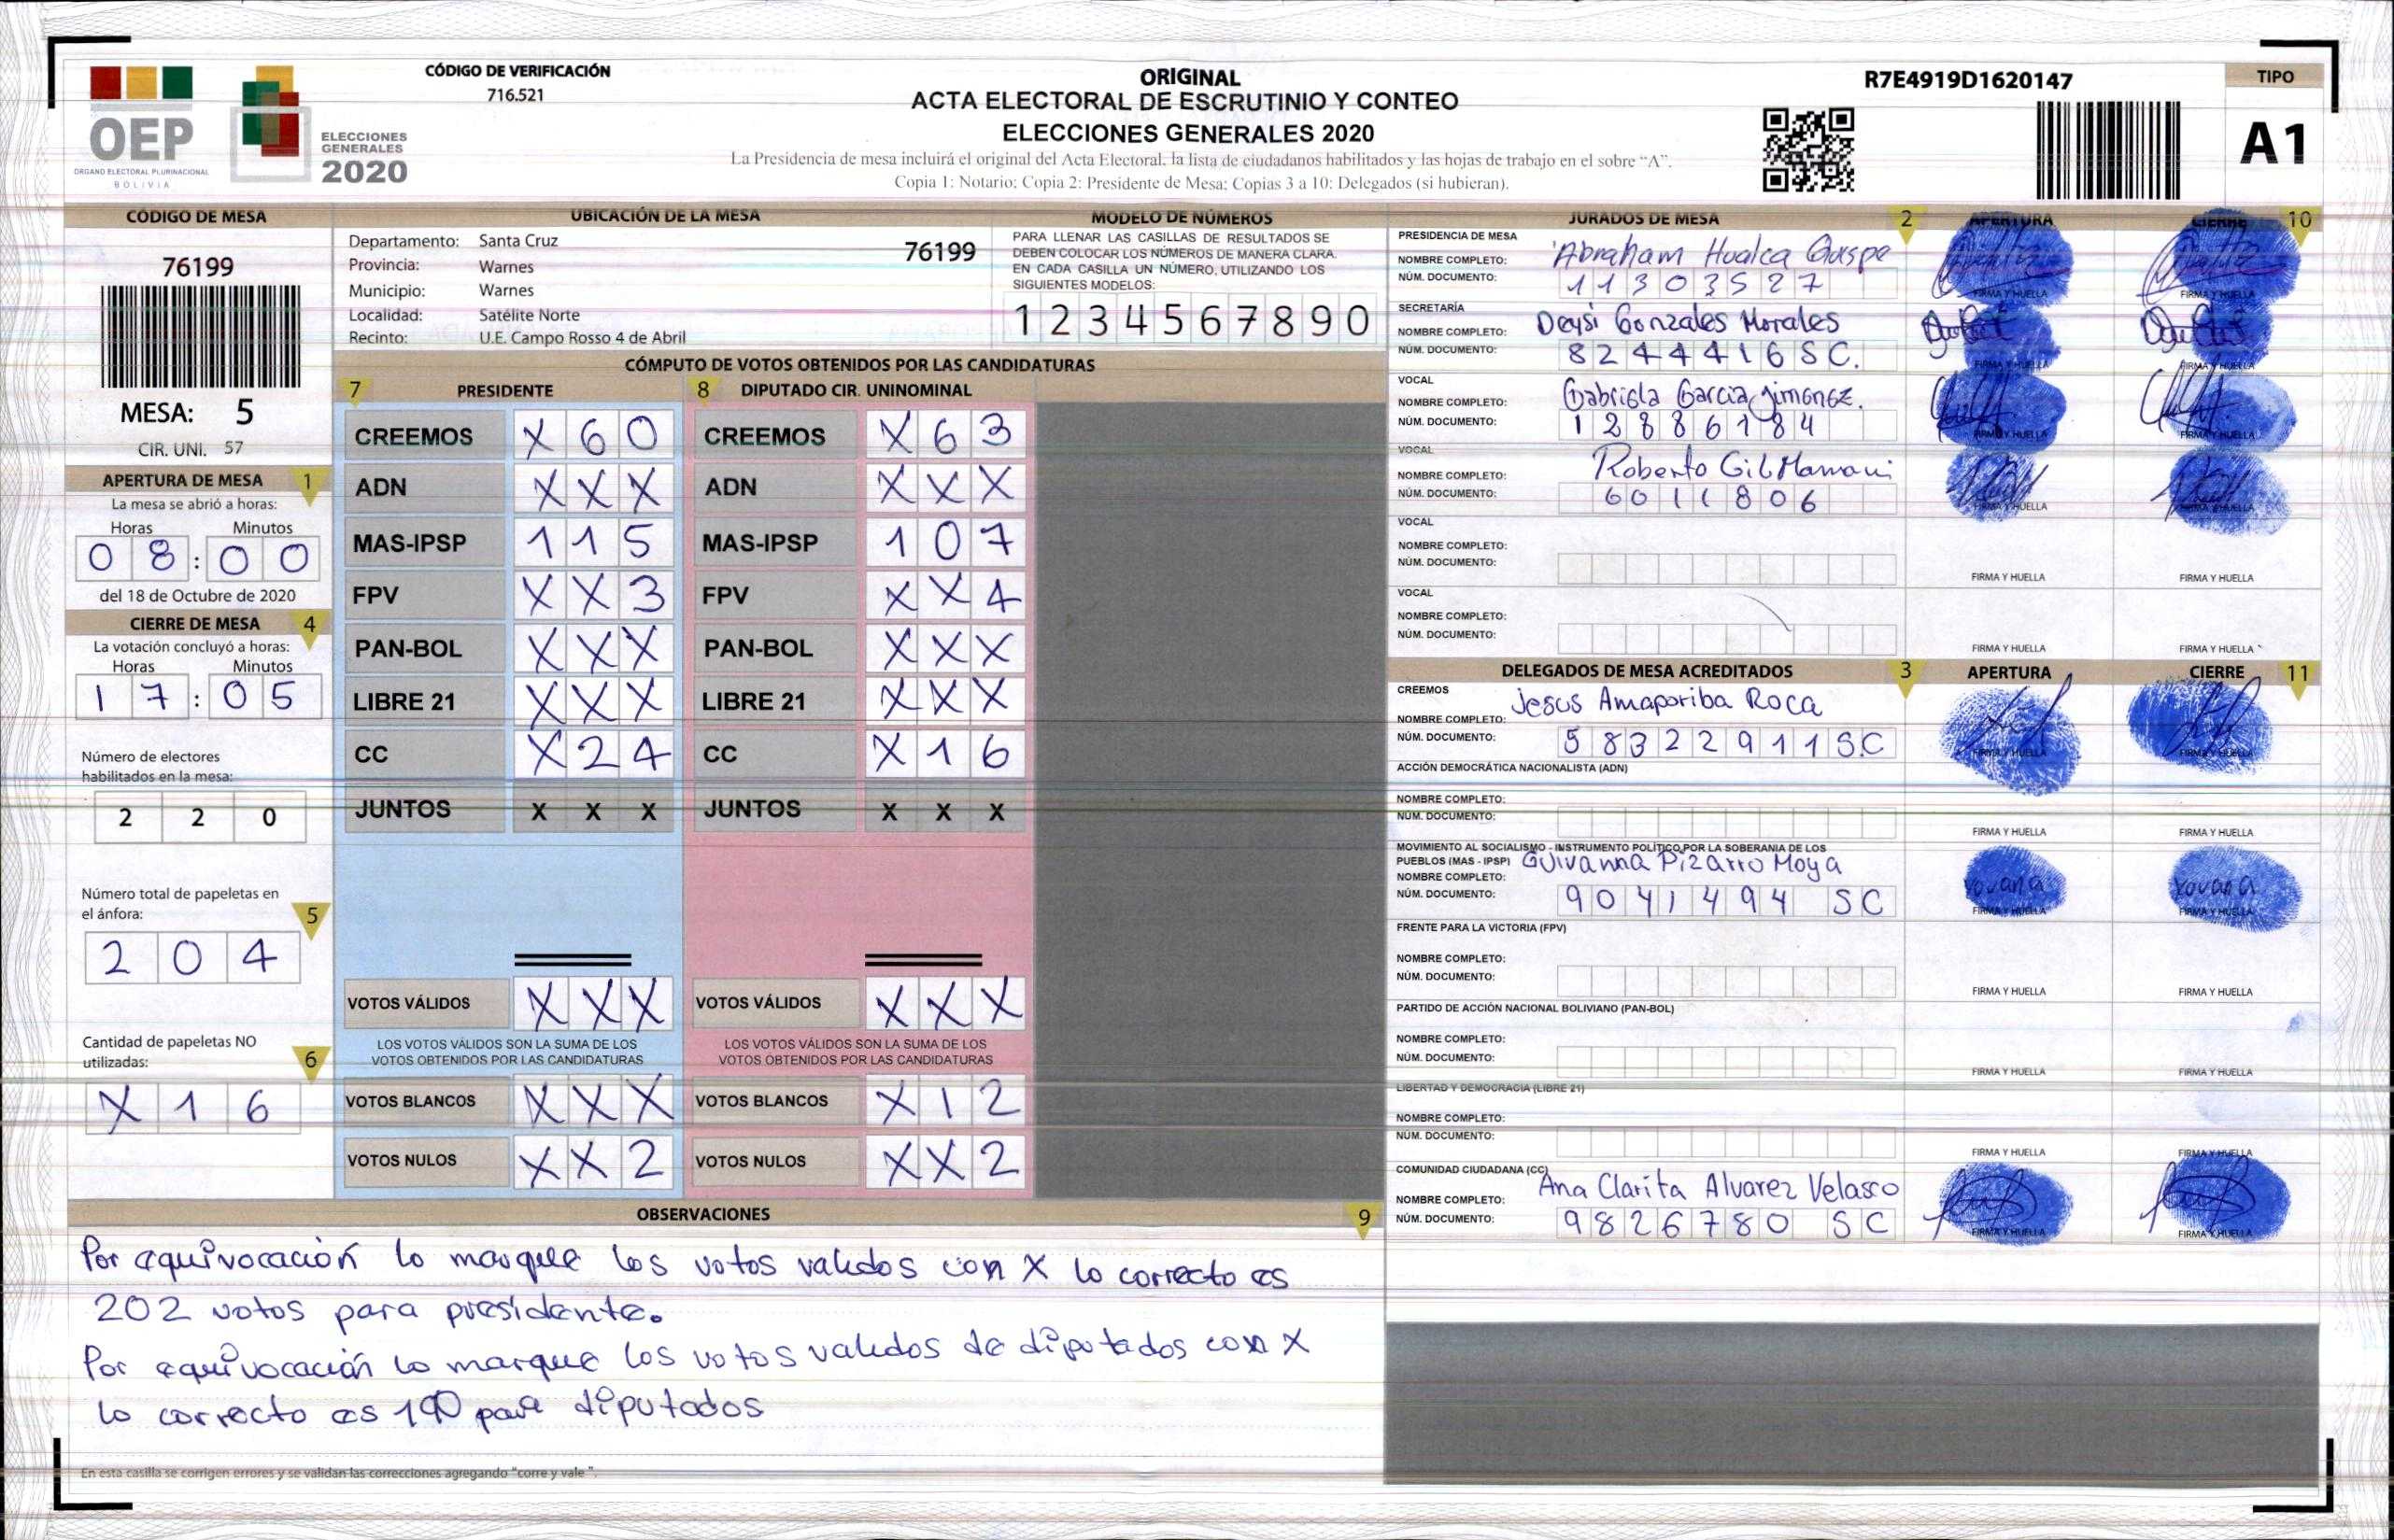 OEP
ÓRGANO ELECTORAL PLURINACIONAL
BOLIVIA
ELECCIONES
GENERALES
2020
CÓDIGO DE VERIFICACIÓN
716.521
ORIGINAL
ACTA ELECTORAL DE ESCRUTINIO Y CONTEO
ELECCIONES GENERALES 2020
La Presidencia de mesa incluirá el original del Acta Electoral, la lista de ciudadanos habilitados y las hojas de trabajo en el sobre “A”.
Copia 1: Notario; Copia 2: Presidente de Mesa; Copias 3 a 10: Delegados (si hubieran).
R7E4919D1620147
TIPO
A1
CÓDIGO DE MESA
76199
MESA: 5
CIR. UNI. 57
UBICACIÓN DE LA MESA
Departamento: Santa Cruz
76199
Provincia: Warnes
Municipio: Warnes
Localidad: Satélite Norte
Recinto: U.E. Campo Rosso 4 de Abril
MODELO DE NÚMEROS
PARA LLENAR LAS CASILLAS DE RESULTADOS SE
DEBEN COLOCAR LOS NÚMEROS DE MANERA CLARA.
EN CADA CASILLA UN NÚMERO, UTILIZANDO LOS
SIGUIENTES MODELOS:
1 2 3 4 5 6 7 8 9 0
APERTURA DE MESA 1
La mesa se abrió a horas:
Horas Minutos
0 8 : 0 0
del 18 de Octubre de 2020
CIERRE DE MESA 4
La votación concluyó a horas:
Horas Minutos
1 7 : 0 5
Número de electores
habilitados en la mesa:
2 2 0
Número total de papeletas en
el ánfora: 5
2 0 4
Cantidad de papeletas NO
utilizadas: 6
X 1 6
CÓMPUTO DE VOTOS OBTENIDOS POR LAS CANDIDATURAS
7 PRESIDENTE
CREEMOS X 6 0
ADN X X X
MAS-IPSP 1 1 5
FPV X X 3
PAN-BOL X X X
LIBRE 21 X X X
CC X 2 4
JUNTOS X X X
VOTOS VÁLIDOS X X X
LOS VOTOS VÁLIDOS SON LA SUMA DE LOS
VOTOS OBTENIDOS POR LAS CANDIDATURAS
VOTOS BLANCOS X X X
VOTOS NULOS X X 2
8 DIPUTADO CIR. UNINOMINAL
CREEMOS X 6 3
ADN X X X
MAS-IPSP 1 0 7
FPV X X 4
PAN-BOL X X X
LIBRE 21 X X X
CC X 1 6
JUNTOS X X X
VOTOS VÁLIDOS X X X
LOS VOTOS VÁLIDOS SON LA SUMA DE LOS
VOTOS OBTENIDOS POR LAS CANDIDATURAS
VOTOS BLANCOS X 1 2
VOTOS NULOS X X 2
OBSERVACIONES 9
Por equivocación lo marque los votos validos con X lo correcto es
202 votos para presidente.
Por equivocación lo marque los votos validos de diputados con X
lo correcto es 190 para diputados
En esta casilla se corrigen errores y se validan las correcciones agregando “corre y vale”.
JURADOS DE MESA 2 APERTURA CIERRE 10
PRESIDENCIA DE MESA
NOMBRE COMPLETO: Abraham Hualca Quispe
NÚM. DOCUMENTO: 11303527
FIRMA Y HUELLA FIRMA Y HUELLA
SECRETARÍA
NOMBRE COMPLETO: Deysi Gonzales Morales
NÚM. DOCUMENTO: 8244416 SC.
FIRMA Y HUELLA FIRMA Y HUELLA
VOCAL
NOMBRE COMPLETO: Gabriela Garcia Jimenez.
NÚM. DOCUMENTO: 12886184
FIRMA Y HUELLA FIRMA Y HUELLA
VOCAL
NOMBRE COMPLETO: Roberto Gil Mamani
NÚM. DOCUMENTO: 6011806
FIRMA Y HUELLA FIRMA Y HUELLA
VOCAL
NOMBRE COMPLETO:
NÚM. DOCUMENTO:
FIRMA Y HUELLA FIRMA Y HUELLA
VOCAL
NOMBRE COMPLETO:
NÚM. DOCUMENTO:
FIRMA Y HUELLA FIRMA Y HUELLA
DELEGADOS DE MESA ACREDITADOS 3 APERTURA CIERRE 11
CREEMOS
NOMBRE COMPLETO: Jesus Amaporiba Roca
NÚM. DOCUMENTO: 58322911 S.C
FIRMA Y HUELLA FIRMA Y HUELLA
ACCIÓN DEMOCRÁTICA NACIONALISTA (ADN)
NOMBRE COMPLETO:
NÚM. DOCUMENTO:
FIRMA Y HUELLA FIRMA Y HUELLA
MOVIMIENTO AL SOCIALISMO - INSTRUMENTO POLÍTICO POR LA SOBERANIA DE LOS
PUEBLOS (MAS - IPSP)
NOMBRE COMPLETO: Guivanna Pizarro Moya
NÚM. DOCUMENTO: 9041494 SC
Yovana Yovana
FIRMA Y HUELLA FIRMA Y HUELLA
FRENTE PARA LA VICTORIA (FPV)
NOMBRE COMPLETO:
NÚM. DOCUMENTO:
FIRMA Y HUELLA FIRMA Y HUELLA
PARTIDO DE ACCIÓN NACIONAL BOLIVIANO (PAN-BOL)
NOMBRE COMPLETO:
NÚM. DOCUMENTO:
FIRMA Y HUELLA FIRMA Y HUELLA
LIBERTAD Y DEMOCRACIA (LIBRE 21)
NOMBRE COMPLETO:
NÚM. DOCUMENTO:
FIRMA Y HUELLA FIRMA Y HUELLA
COMUNIDAD CIUDADANA (CC)
NOMBRE COMPLETO: Ana Clarita Alvarez Velasco
NÚM. DOCUMENTO: 9826780 SC
FIRMA Y HUELLA FIRMA Y HUELLA